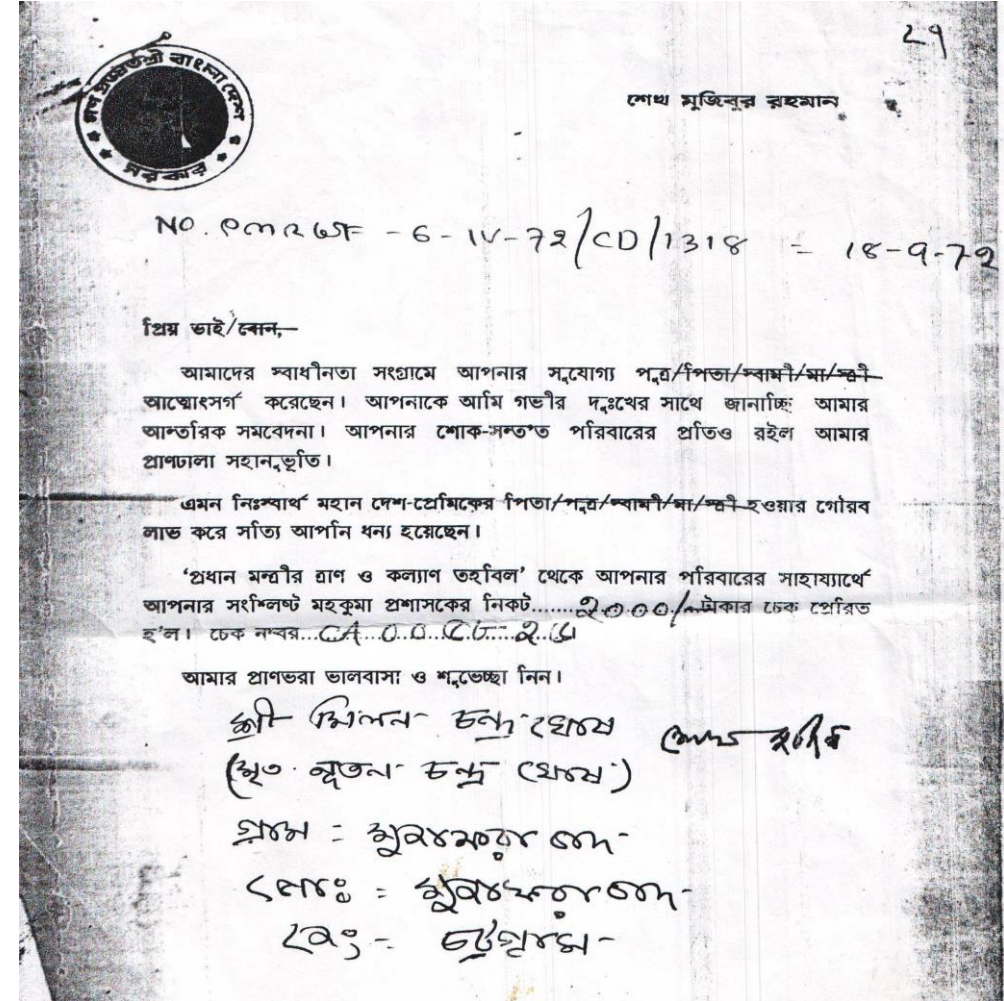 29
গণ প্রজাতন্ত্রী বাংলাদেশ
সরকার
শেখ মুজিবুর রহমান
NO. PMRWF - 6 - IV - 72/CD/1318 = 18-9-72
প্রিয় ভাই/বোন,
আমাদের স্বাধীনতা সংগ্রামে আপনার সুযোগ্য পুত্র/পিতা/স্বামী/মা/স্ত্রী
আত্মোৎসর্গ করেছেন। আপনাকে আমি গভীর দুঃখের সাথে জানাচ্ছি আমার
আন্তরিক সমবেদনা। আপনার শোক-সন্তপ্ত পরিবারের প্রতিও রইল আমার
প্রাণঢালা সহানুভূতি।
এমন নিঃস্বার্থ মহান দেশ-প্রেমিকের পিতা/পুত্র/স্বামী/মা/স্ত্রী হওয়ার গৌরব
লাভ করে সত্যি আপনি ধন্য হয়েছেন।
'প্রধান মন্ত্রীর ত্রাণ ও কল্যাণ তহবিল' থেকে আপনার পরিবারের সাহায্যার্থে
আপনার সংশ্লিষ্ট মহকুমা প্রশাসকের নিকট........2000/-টাকার চেক প্রেরিত
হ'ল। চেক নম্বর...CA
আমার প্রাণভরা ভালবাসা ও শুভেচ্ছা নিন।
শ্রী মিলন চন্দ্র ঘোষ
(মৃত নূতন চন্দ্র ঘোষ)
গ্রাম =
পোঃ =
জেং = চট্টগ্রাম